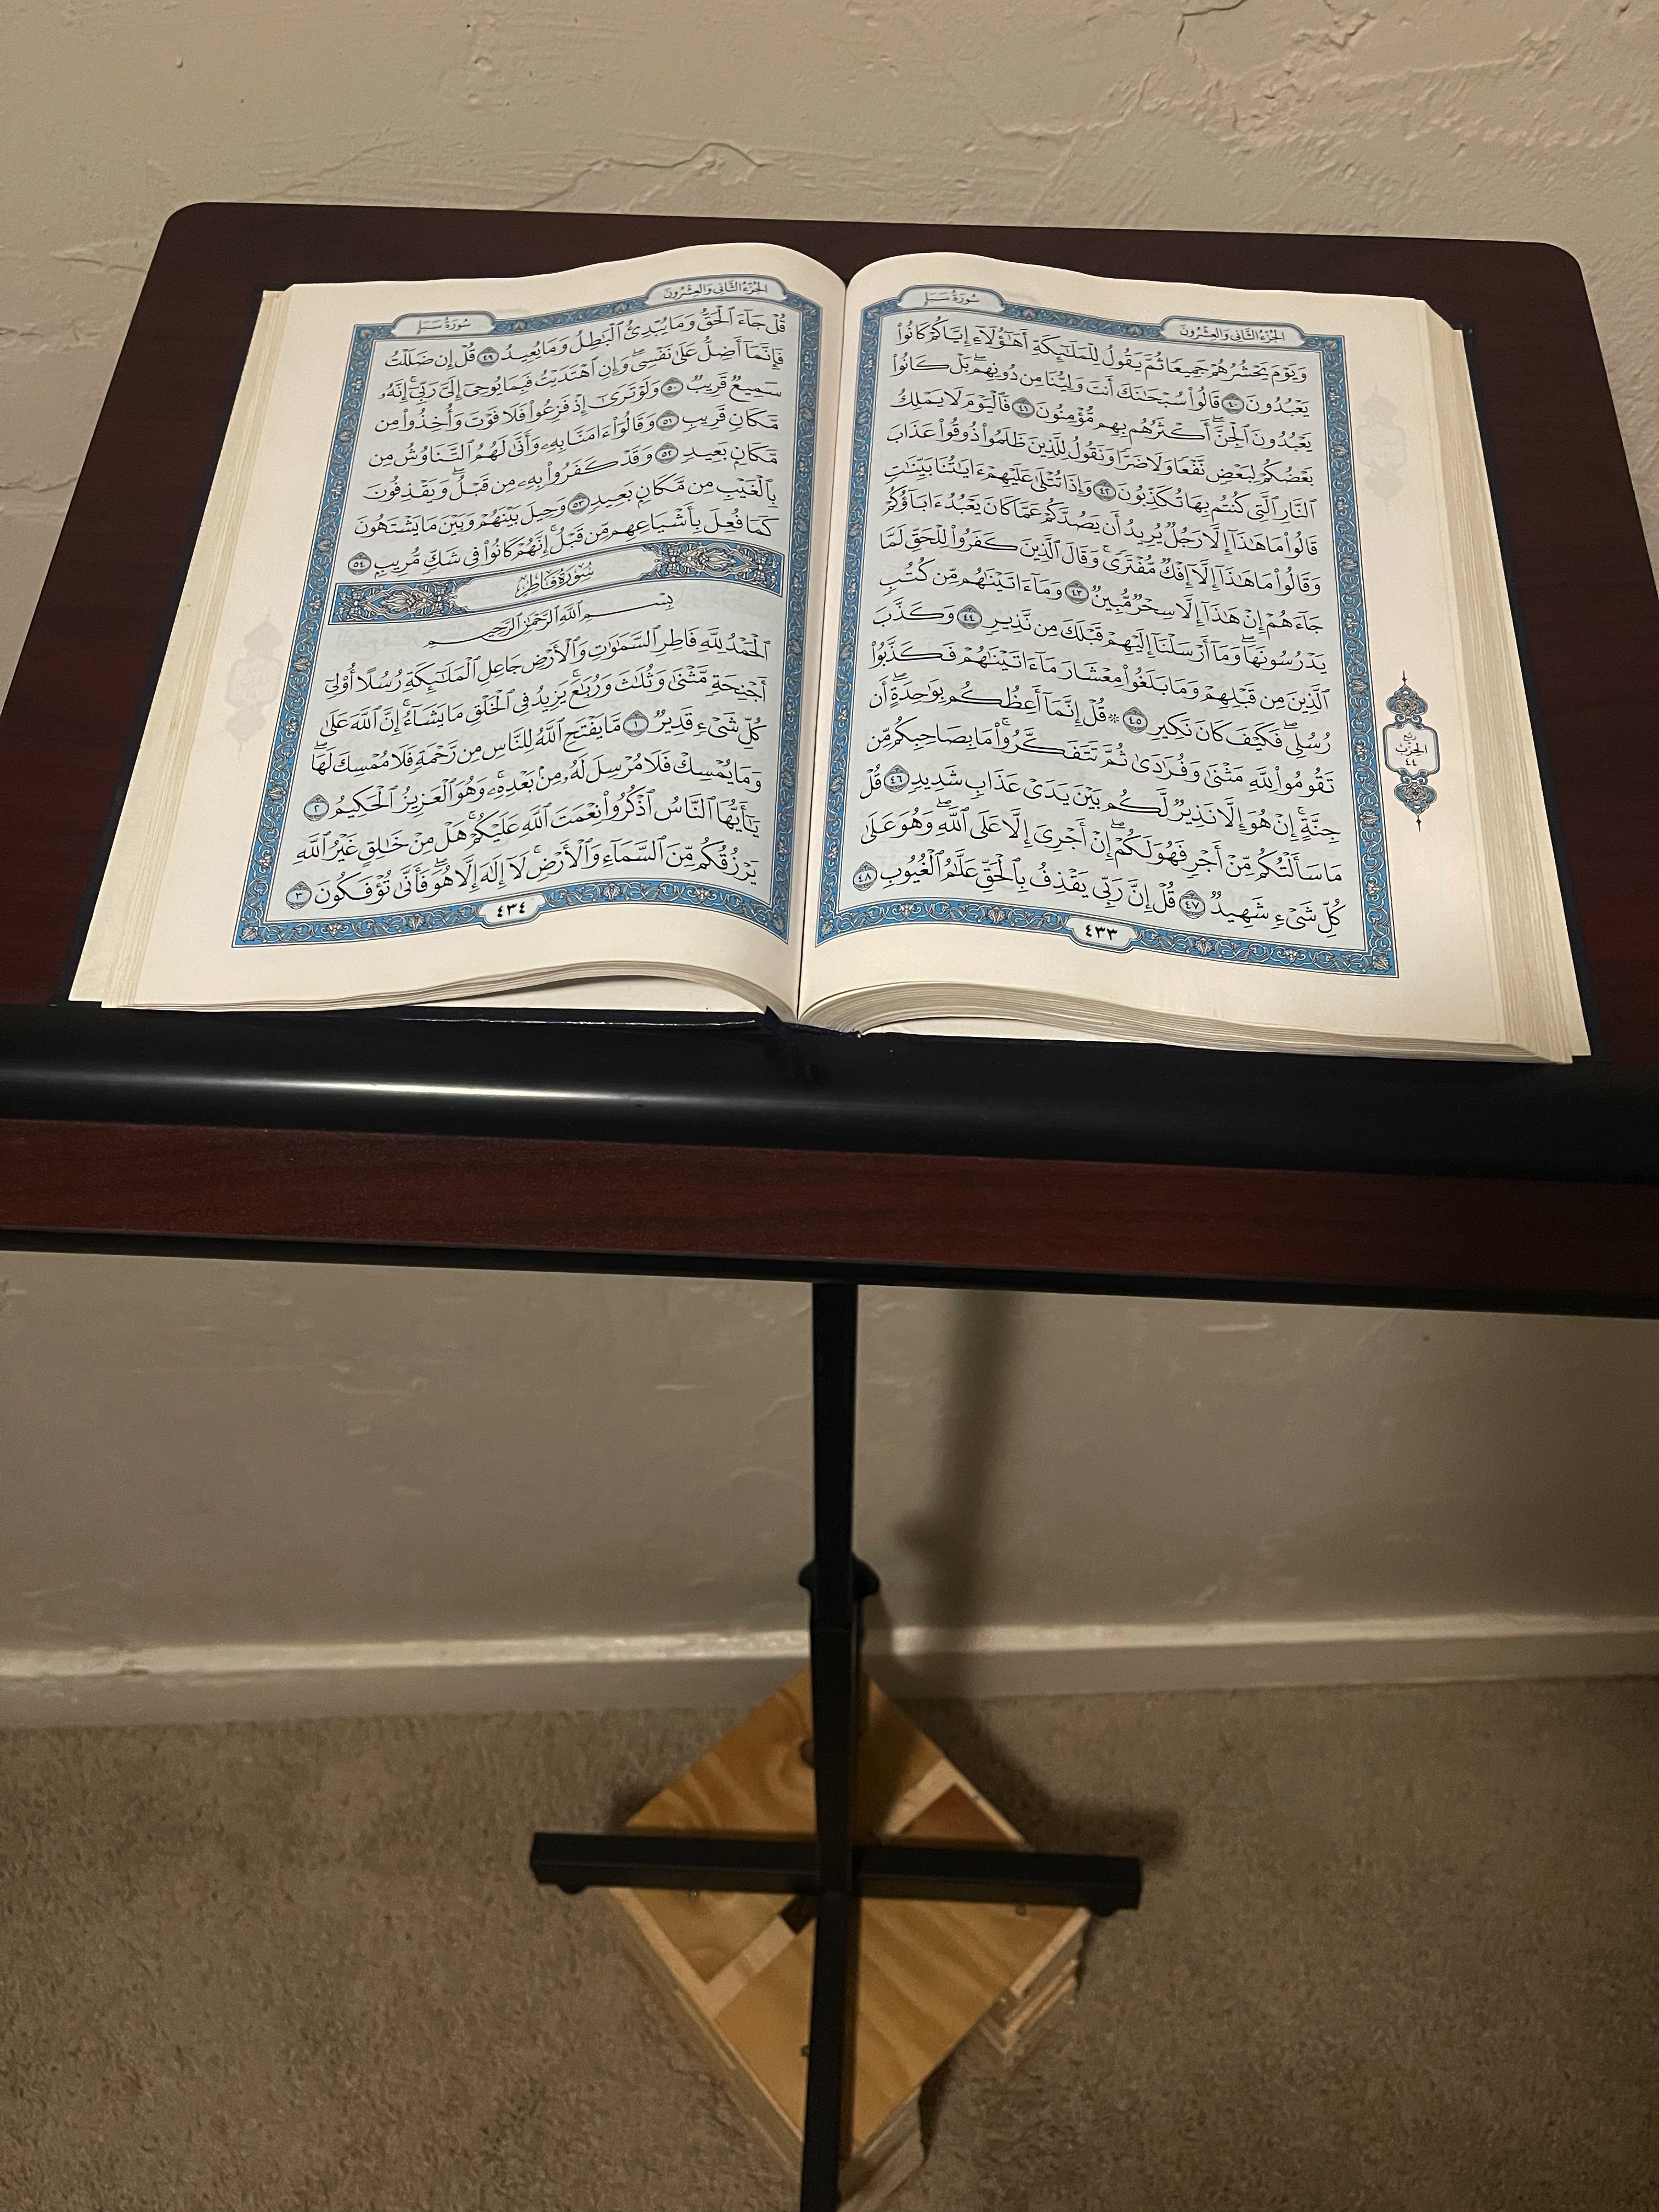 سُورَةُ سَبَإٍ
الجُزْءُ الثَّانِي وَالعِشْرُونَ
وَيَوْمَ يَحْشُرُهُمْ جَمِيعًا ثُمَّ يَقُولُ لِلْمَلَٰٓئِكَةِ أَهَٰٓؤُلَآءِ إِيَّاكُمْ كَانُوا۟
يَعْبُدُونَ ٤٠ قَالُوا۟ سُبْحَٰنَكَ أَنتَ وَلِيُّنَا مِن دُونِهِم ۖ بَلْ كَانُوا۟
يَعْبُدُونَ ٱلْجِنَّ ۖ أَكْثَرُهُم بِهِم مُّؤْمِنُونَ ٤١ فَٱلْيَوْمَ لَا يَمْلِكُ
بَعْضُكُمْ لِبَعْضٍ نَّفْعًا وَلَا ضَرًّا وَنَقُولُ لِلَّذِينَ ظَلَمُوا۟ ذُوقُوا۟ عَذَابَ
ٱلنَّارِ ٱلَّتِى كُنتُم بِهَا تُكَذِّبُونَ ٤٢ وَإِذَا تُتْلَىٰ عَلَيْهِمْ ءَايَٰتُنَا بَيِّنَٰتٍ
قَالُوا۟ مَا هَٰذَآ إِلَّا رَجُلٌ يُرِيدُ أَن يَصُدَّكُمْ عَمَّا كَانَ يَعْبُدُ ءَابَآؤُكُمْ
وَقَالُوا۟ مَا هَٰذَآ إِلَّآ إِفْكٌ مُّفْتَرًى ۚ وَقَالَ ٱلَّذِينَ كَفَرُوا۟ لِلْحَقِّ لَمَّا
جَآءَهُمْ إِنْ هَٰذَآ إِلَّا سِحْرٌ مُّبِينٌ ٤٣ وَمَآ ءَاتَيْنَٰهُم مِّن كُتُبٍ
يَدْرُسُونَهَا ۖ وَمَآ أَرْسَلْنَآ إِلَيْهِمْ قَبْلَكَ مِن نَّذِيرٍ ٤٤ وَكَذَّبَ
ٱلَّذِينَ مِن قَبْلِهِمْ وَمَا بَلَغُوا۟ مِعْشَارَ مَآ ءَاتَيْنَٰهُمْ فَكَذَّبُوا۟
رُسُلِى ۖ فَكَيْفَ كَانَ نَكِيرِ ٤٥ ۞ قُلْ إِنَّمَآ أَعِظُكُم بِوَٰحِدَةٍ ۖ أَن
تَقُومُوا۟ لِلَّهِ مَثْنَىٰ وَفُرَٰدَىٰ ثُمَّ تَتَفَكَّرُوا۟ ۚ مَا بِصَاحِبِكُم مِّن
جِنَّةٍ ۚ إِنْ هُوَ إِلَّا نَذِيرٌ لَّكُم بَيْنَ يَدَىْ عَذَابٍ شَدِيدٍ ٤٦ قُلْ
مَا سَأَلْتُكُم مِّنْ أَجْرٍ فَهُوَ لَكُمْ ۖ إِنْ أَجْرِىَ إِلَّا عَلَى ٱللَّهِ ۖ وَهُوَ عَلَىٰ
كُلِّ شَىْءٍ شَهِيدٌ ٤٧ قُلْ إِنَّ رَبِّى يَقْذِفُ بِٱلْحَقِّ عَلَّٰمُ ٱلْغُيُوبِ ٤٨
٤٣٣
رُبْع
الحِزْب
٤٤
الجُزْءُ الثَّانِي وَالعِشْرُونَ
سُورَةُ سَبَإٍ
قُلْ جَآءَ ٱلْحَقُّ وَمَا يُبْدِئُ ٱلْبَٰطِلُ وَمَا يُعِيدُ ٤٩ قُلْ إِن ضَلَلْتُ
فَإِنَّمَآ أَضِلُّ عَلَىٰ نَفْسِى ۖ وَإِنِ ٱهْتَدَيْتُ فَبِمَا يُوحِىٓ إِلَىَّ رَبِّىٓ ۚ إِنَّهُۥ
سَمِيعٌ قَرِيبٌ ٥٠ وَلَوْ تَرَىٰٓ إِذْ فَزِعُوا۟ فَلَا فَوْتَ وَأُخِذُوا۟ مِن
مَّكَانٍ قَرِيبٍ ٥١ وَقَالُوٓا۟ ءَامَنَّا بِهِۦ وَأَنَّىٰ لَهُمُ ٱلتَّنَاوُشُ مِن
مَّكَانٍۭ بَعِيدٍ ٥٢ وَقَدْ كَفَرُوا۟ بِهِۦ مِن قَبْلُ ۖ وَيَقْذِفُونَ
بِٱلْغَيْبِ مِن مَّكَانٍۭ بَعِيدٍ ٥٣ وَحِيلَ بَيْنَهُمْ وَبَيْنَ مَا يَشْتَهُونَ
كَمَا فُعِلَ بِأَشْيَاعِهِم مِّن قَبْلُ ۚ إِنَّهُمْ كَانُوا۟ فِى شَكٍّ مُّرِيبٍۭ ٥٤
سُورَةُ فَاطِرٍ
بِسْمِ ٱللَّهِ ٱلرَّحْمَٰنِ ٱلرَّحِيمِ
ٱلْحَمْدُ لِلَّهِ فَاطِرِ ٱلسَّمَٰوَٰتِ وَٱلْأَرْضِ جَاعِلِ ٱلْمَلَٰٓئِكَةِ رُسُلًا أُو۟لِىٓ
أَجْنِحَةٍ مَّثْنَىٰ وَثُلَٰثَ وَرُبَٰعَ ۚ يَزِيدُ فِى ٱلْخَلْقِ مَا يَشَآءُ ۚ إِنَّ ٱللَّهَ عَلَىٰ
كُلِّ شَىْءٍ قَدِيرٌ ١ مَّا يَفْتَحِ ٱللَّهُ لِلنَّاسِ مِن رَّحْمَةٍ فَلَا مُمْسِكَ لَهَا ۖ
وَمَا يُمْسِكْ فَلَا مُرْسِلَ لَهُۥ مِنۢ بَعْدِهِۦ ۚ وَهُوَ ٱلْعَزِيزُ ٱلْحَكِيمُ ٢
يَٰٓأَيُّهَا ٱلنَّاسُ ٱذْكُرُوا۟ نِعْمَتَ ٱللَّهِ عَلَيْكُمْ ۚ هَلْ مِنْ خَٰلِقٍ غَيْرُ ٱللَّهِ
يَرْزُقُكُم مِّنَ ٱلسَّمَآءِ وَٱلْأَرْضِ ۚ لَآ إِلَٰهَ إِلَّا هُوَ ۖ فَأَنَّىٰ تُؤْفَكُونَ ٣
٤٣٤